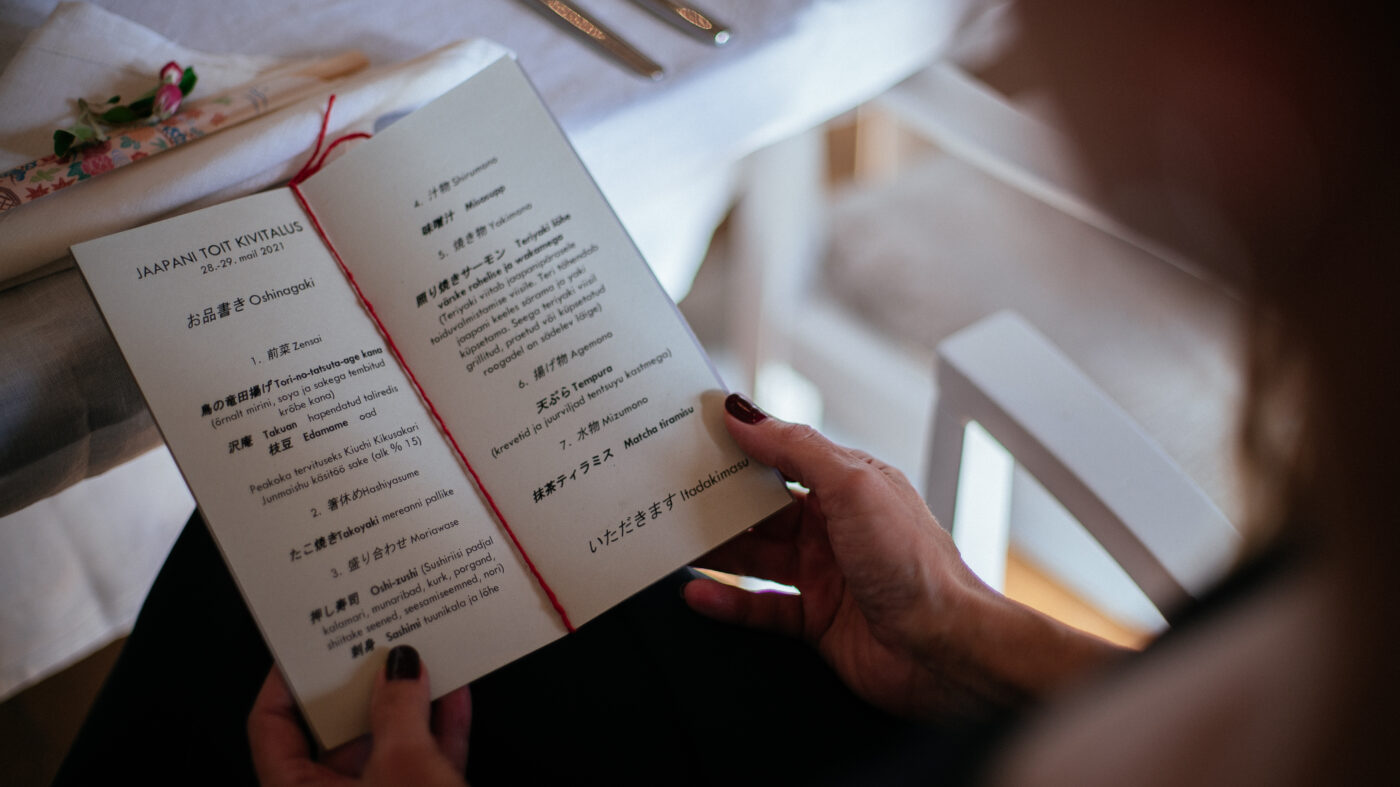 JAAPANI TOIT KIVITALUS
28.-29. mail 2021
お品書き Oshinagaki
1. 前菜 Zensai
鳥の竜田揚げ Tori-no-tatsuta-age kana
(õrnalt mirini, soya ja sakega tembitud
krõbe kana)
沢庵 Takuan hapendatud taliredis
枝豆 Edamame oad
Peakoka tervituseks Kiuchi Kikusakari
Junmaishu käsitöö sake (alk % 15)
2. 箸休め Hashiyasume
たこ焼き Takoyaki mereanni pallike
3. 盛り合わせ Moriawase
押し寿司 Oshi-zushi (Sushiriisi padjal
kalamari, munaribad, kurk, porgand,
shiitake seened, seesamiseemned, nori)
刺身 Sashimi tuunikala ja lõhe
4. 汁物 Shirumono
味噌汁 Misosupp
5. 焼き物 Yakimono
照り焼きサーモン Teriyaki lõhe
värske rohelise ja wakamega
(Teriyaki viitab jaapanipärasele
toiduvalmistamise viisile. Teri tähendab
jaapani keeles särama ja yaki
küpsetama. Seega teriyaki viisil
grillitud, praetud või küpsetatud
roogadel on sädelev läige)
6. 揚げ物 Agemono
天ぷら Tempura
(krevetid ja juurviljad tentsuyu kastmega)
7. 水物 Mizumono
抹茶ティラミス Matcha tiramisu
いただきます Itadakimasu